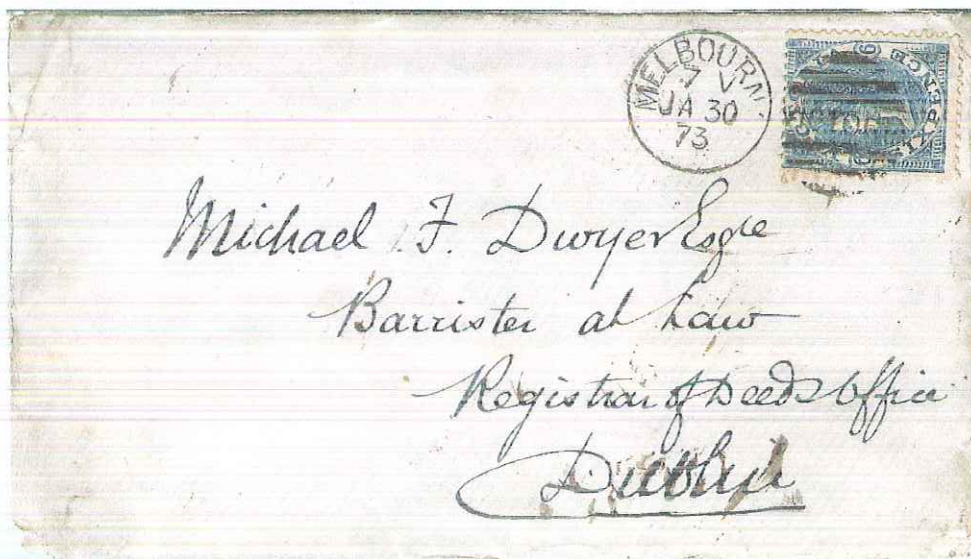 MELBOURN
7 V
JA 30
73
SIXPENCE
Michael F. Dwyer Esqre
Barrister at Law
Registrar of Deeds Office
Dublin